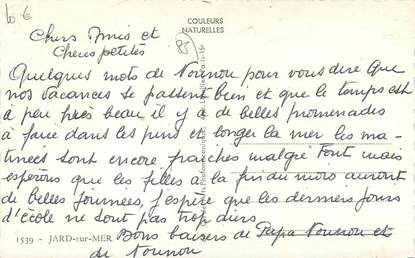 10 €
COULEURS
NATURELLES
85
Chers Amis et
Cheres petites
Quelques mots de Nounou pour vous dire que
nos vacances se passent bien et que le temps est
à peu près beau il y a de belles promenades
à faire dans les pins et longer la mer les ma-
tinées sont encore fraiches malgré Tout mais
espérons que les filles à la fin du mois auront
de belles journées, j'espère que les derniers jours
d'école ne sont pas trop durs
1539 - JARD-sur-MER Bons baisers de Papa Nounou et
de Nounou